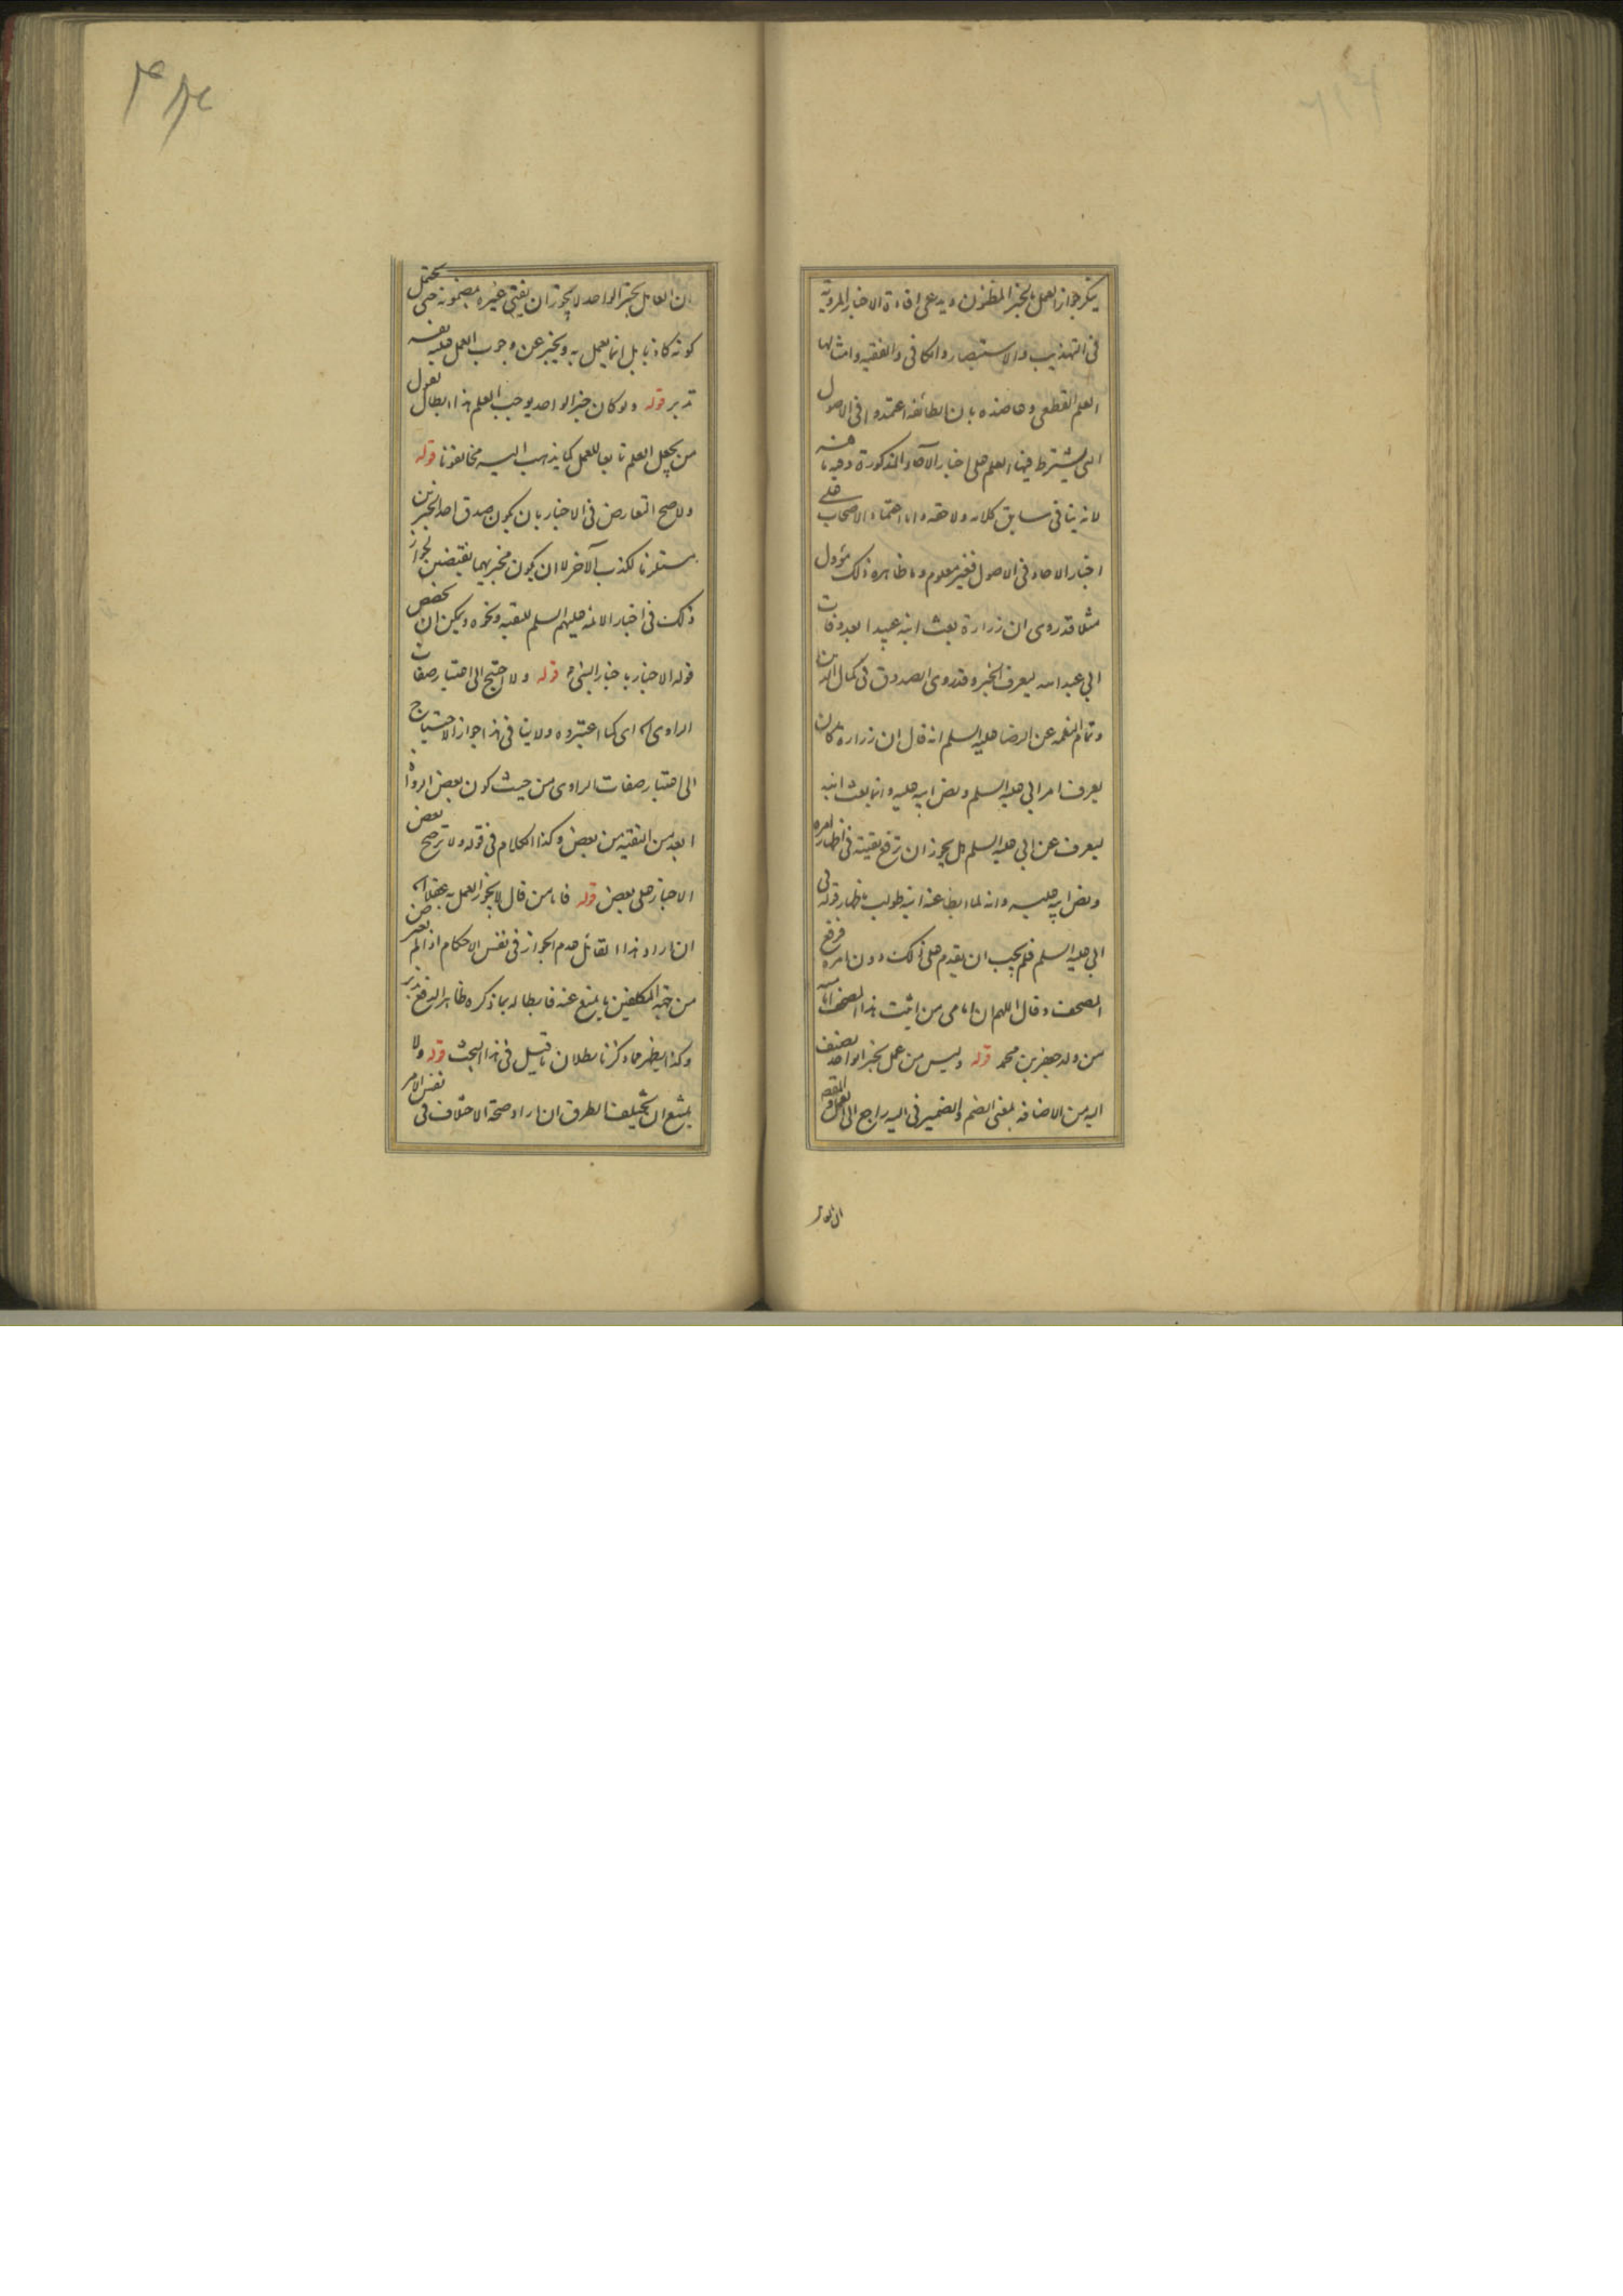 ينكر جواز العمل بالخبر المظنون ويدعى افادة الاخبار المروية
فى التهذيب والاستبصار والكافى والفقيه وامثالها
العلم القطعى وعاضده بان الطائفة اعتمدوا فى الاصول
التى يشترط فيها العلم على اخبار الآحاد المذكورة وفيه ما فيه
لانه ينافى سابق كلامه ولاحقه واما اعتماد الاصحاب على
اخبار الاحاد فى الاصول فغير معلوم وما ظاهره ذلك مؤول
مثلا قد روى ان زرارة بعث ابنه عبيدا بعد وفات
ابى عبد الله ليعرف الخبر وقد روى الصدوق فى كمال الدين
وتمام النعمه عن الرضا عليه السلم انه قال ان زرارة كان
يعرف امر ابى عليه السلم ونص ابيه عليه وانما بعث ابنه
ليعرف عن ابى عليه السلم هل يجوز ان يرفع تقيته فى اظهار امره
ونص ابيه عليه وانه لما ابطا عنه ابنه طولب باظهار قوله فى
ابى عليه السلم فلم يجب ان يقدم على ذلك دون امره فرفع
المصحف وقال اللهم ان امامى من اثبت هذا المصحف امامته
من ولد جعفر بن محمد قوله وليس من عمل بخبر الواحد يضيف
اليه من الاضافه بمعنى الضم والضمير فى اليه راجع الى العمل والمقص
ان العامل بخبر الواحد لا يجوز ان يفتى غيره بمضمونه حتى يحتمل
كونه كاذبا بل انما يعمل به ويخبر عن وجوب العمل عليه نفسه
تدبر قوله ولو كان خبر الواحد يوجب العلم هذا ابطال لقول
من يجعل العلم تابعا للعمل كما يذهب اليه مخالفونا قوله
ولا صح التعارض فى الاخبار بان يكون صدق احد الخبرين
مستلزما لكذب الآخر لا ان يكون مخبريهما نقيضين لجواز
ذلك فى اخبار الائمه عليهم السلم للتقيه ونحوه ويمكن ان يخصص
قوله الاخبار باخبار النبى ص قوله ولا احتيج الى اعتبار صفات
الراوى اى كما اعتبروه ولا ينافى هذا جواز الاحتياج
الى اعتبار صفات الراوى من حيث كون بعض الرواة
ابعد من التقيه من بعض وكذا الكلام فى قوله ولا ترجح بعض
الاخبار على بعض قوله فاما من قال لا يجوز العمل به عقلا
ان اراد هذا القائل عدم الجواز فى نفس الاحكام اذا لم يعرض
من جهه المكلفين ما يمنع عنه فابطاله بما ذكره ظاهر الدفع تدبر
وكذا يظهر مما ذكرنا بطلان ما قيل فى هذا البحث قوله ولا
يمتنع ان تختلف الطرق ان اراد صحة الاختلاف فى نفس الامر